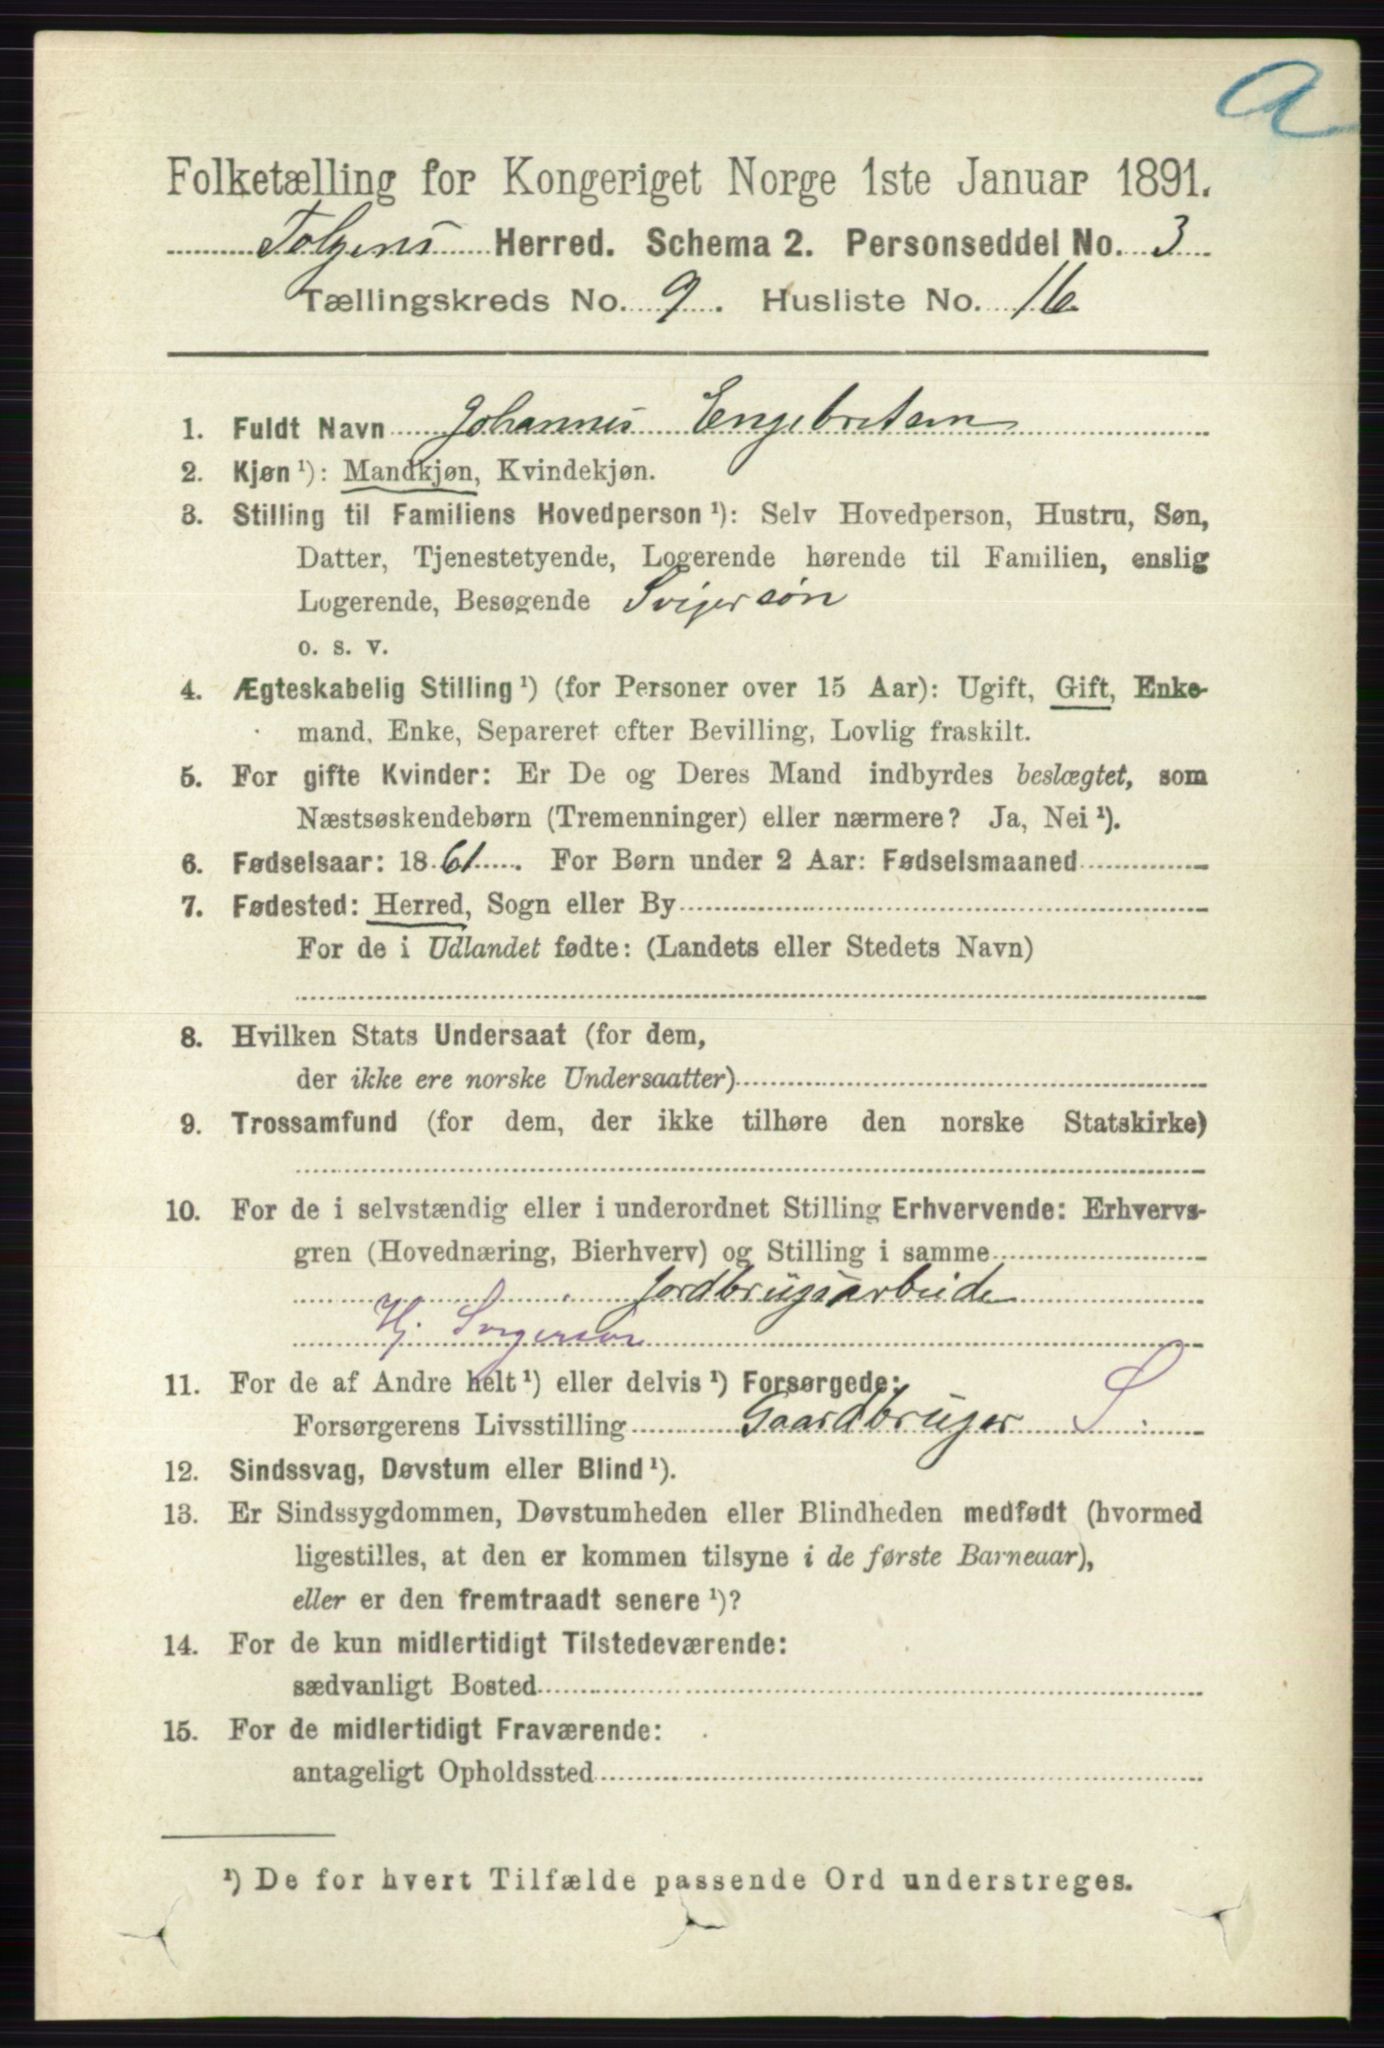 a
Folketælling for Kongeriget Norge 1ste Januar 1891.
Tolgens Herred. Schema 2. Personseddel No. 3
Tællingskreds No. 9. Husliste No. 16
1. Fuldt Navn Johannes Engebretsen
2. Kjøn ¹): Mandkjøn, Kvindekjøn.
3. Stilling til Familiens Hovedperson ¹): Selv Hovedperson, Hustru, Søn,
Datter, Tjenestetyende, Logerende hørende til Familien, enslig
Logerende, Besøgende Svigersøn
o. s. v.
4. Ægteskabelig Stilling ¹) (for Personer over 15 Aar): Ugift, Gift, Enke-
mand, Enke, Separeret efter Bevilling, Lovlig fraskilt.
5. For gifte Kvinder: Er De og Deres Mand indbyrdes beslægtet, som
Næstsøskendebørn (Tremenninger) eller nærmere? Ja, Nei ¹).
6. Fødselsaar: 1861. For Børn under 2 Aar: Fødselsmaaned
7. Fødested: Herred, Sogn eller By
For de i Udlandet fødte: (Landets eller Stedets Navn)
8. Hvilken Stats Undersaat (for dem,
der ikke ere norske Undersaatter)
9. Trossamfund (for dem, der ikke tilhøre den norske Statskirke)
10. For de i selvstændig eller i underordnet Stilling Erhvervende: Erhvervs-
gren (Hovednæring, Bierhverv) og Stilling i samme
Jordbrugsarbeide
Hj. Svigersøn
11. For de af Andre helt ¹) eller delvis ¹) Forsørgede:
Forsørgerens Livsstilling Gaardbruger S
12. Sindssvag, Døvstum eller Blind ¹).
13. Er Sindssygdommen, Døvstumheden eller Blindheden medfødt (hvormed
ligestilles, at den er kommen tilsyne i de første Barneaar),
eller er den fremtraadt senere ¹)?
14. For de kun midlertidigt Tilstedeværende:
sædvanligt Bosted
15. For de midlertidigt Fraværende:
antageligt Opholdssted
¹) De for hvert Tilfælde passende Ord understreges.